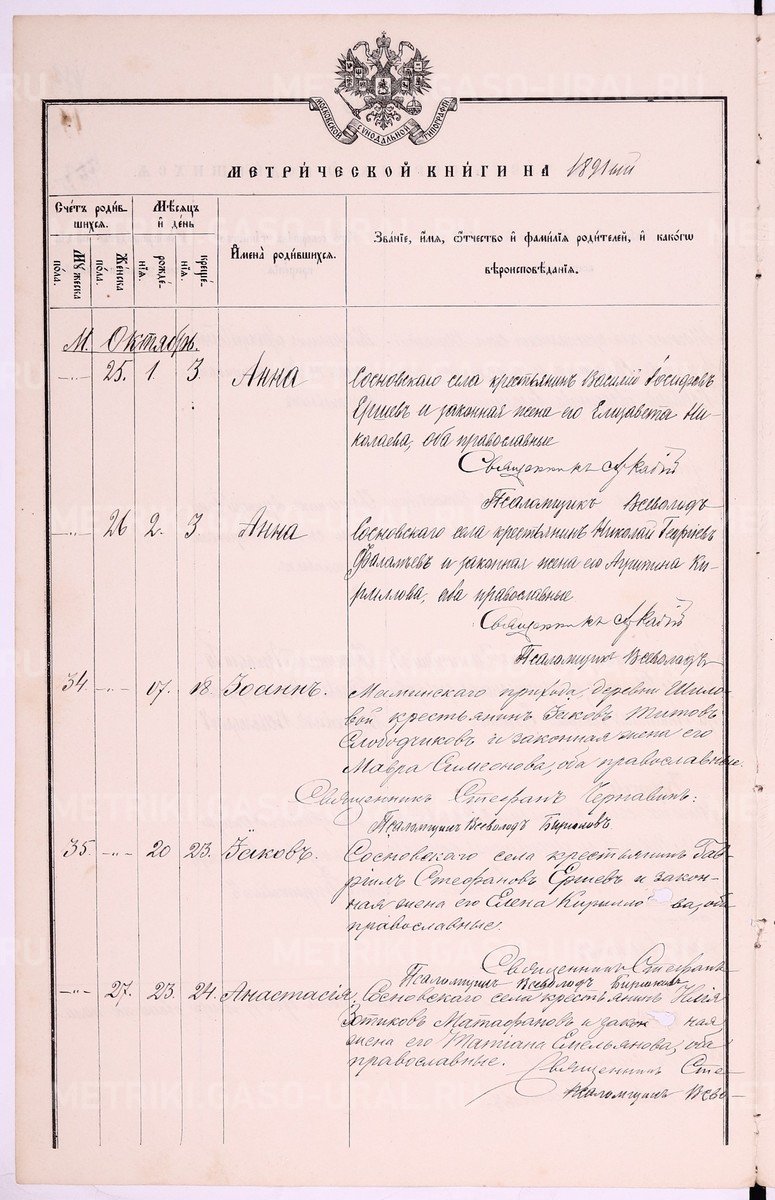 МОСКОВСКОЙ СѴНОДАЛЬНОЙ ТИПОГРАФІИ
МЕТРИ́ЧЕСКОЙ КНИ́ГИ НА 1891ый
Сче́тъ роди́в-
шихся.
Мѣ́сяцъ
и де́нь
И҆мена̀ роди́вшихся.
Зва́ніе, и҆́мя, ѻ҆́тчество и҆ фами́лія роди́телей, и҆ како́гѡ
вѣроисповѣ́данія.
Му́жеска
по́ла.
Же́нска
по́ла.
рожде́-
нія.
креще́-
нія.
М. Октябрь.
-„- 25. 1. 3. Анна Сосновскаго села крестьянинъ Василій Іосифовъ
Ершевъ и законная жена его Елизавета Ни-
колаева, оба православные
Священникъ Аркадій
Псаломщикъ Всеволодъ
-„- 26 2. 3 Анна Сосновскаго села крестьянинъ Николай Георгіевъ
и законная жена его Агрипина Ки-
риллова, оба православные
Священникъ Аркадій
Псаломщикъ Всеволодъ
34. -„- 17. 18. Іоаннъ. Маминскаго прихода, деревни Шило-
вой крестьянинъ Іаковъ Титовъ
Слободчиковъ и законная жена его
Мавра Симеонова, оба православные.
Священникъ Стефанъ Чернавинъ:
Псаломщикъ Всеволодъ Бирюковъ
35. -„- 20 23. Іаковъ. Сосновскаго села крестьянинъ Гав-
ріилъ Стефановъ Ершевъ и закон-
ная жена его Елена Кирилло ва, оба
православные.
Священникъ Стефанъ
Псаломщикъ Всеволодъ Бирюковъ
-„- 27. 23. 24. Анастасія. Сосновскаго села крестьянинъ Илія
Зотиковъ Матафановъ и закон ная
жена его Татіана Емельянова, оба
православные.
Священникъ Сте-
Псаломщикъ Всево-
METRIKI.GASO-URAL.RU